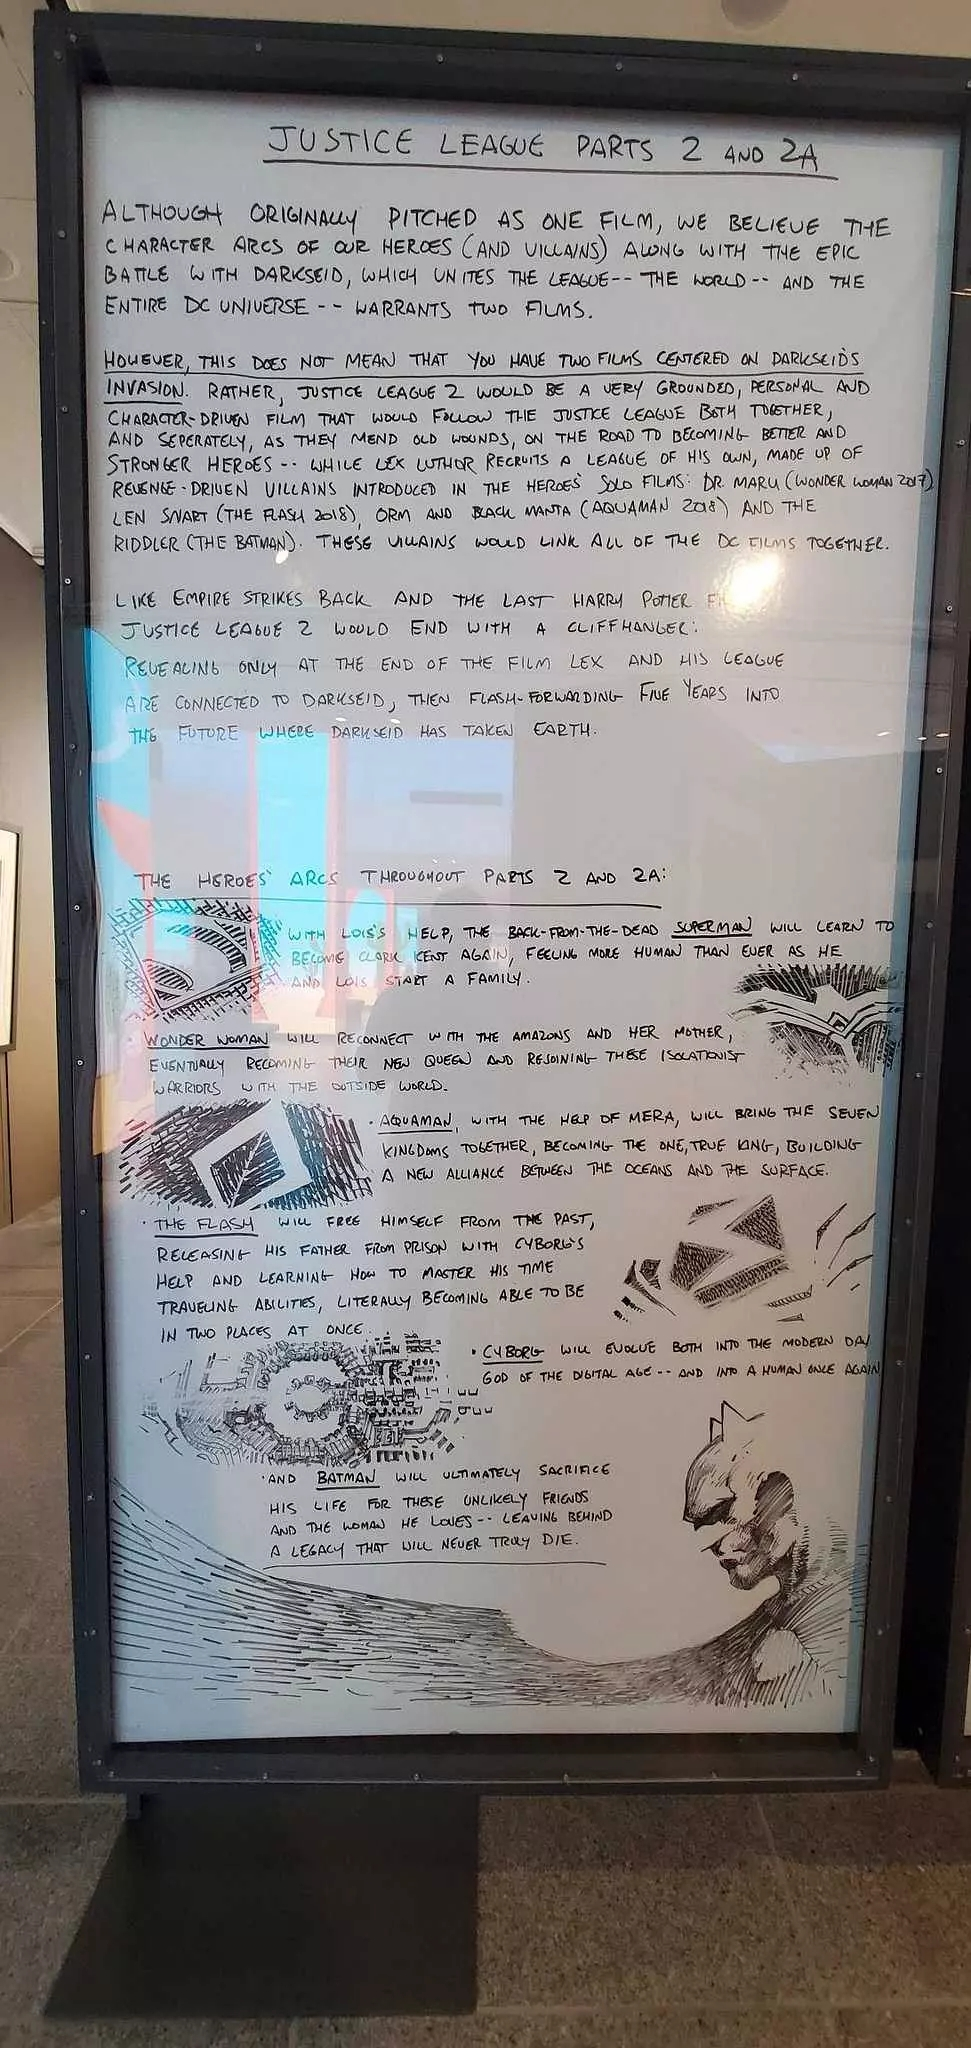 JUSTICE LEAGUE PARTS 2 AND 2A
ALTHOUGH ORIGINALLY PITCHED AS ONE FILM, WE BELIEVE THE
CHARACTER ARCS OF OUR HEROES (AND VILLAINS) ALONG WITH THE EPIC
BATTLE WITH DARKSEID, WHICH UNITES THE LEAGUE-- THE WORLD-- AND THE
ENTIRE DC UNIVERSE -- WARRANTS TWO FILMS.
HOWEVER, THIS DOES NOT MEAN THAT YOU HAVE TWO FILMS CENTERED ON DARKSEID'S
INVASION. RATHER, JUSTICE LEAGUE 2 WOULD BE A VERY GROUNDED, PERSONAL AND
CHARACTER-DRIVEN FILM THAT WOULD FOLLOW THE JUSTICE LEAGUE BOTH TOGETHER,
AND SEPERATELY, AS THEY MEND OLD WOUNDS, ON THE ROAD TO BECOMING BETTER AND
STRONGER HEROES -- WHILE LEX LUTHOR RECRUITS A LEAGUE OF HIS OWN, MADE UP OF
REVENGE-DRIVEN VILLAINS INTRODUCED IN THE HEROES' SOLO FILMS: DR. MARU (WONDER WOMAN 2017),
LEN SNART (THE FLASH 2018), ORM AND BLACK MANTA (AQUAMAN 2018) AND THE
RIDDLER (THE BATMAN). THESE VILLAINS WOULD LINK ALL OF THE DC FILMS TOGETHER.
LIKE EMPIRE STRIKES BACK AND THE LAST HARRY POTTER
JUSTICE LEAGUE 2 WOULD END WITH A CLIFFHANGER:
REVEALING ONLY AT THE END OF THE FILM LEX AND HIS LEAGUE
ARE CONNECTED TO DARKSEID, THEN FLASH-FORWARDING FIVE YEARS INTO
THE FUTURE WHERE DARKSEID HAS TAKEN EARTH.
THE HEROES' ARCS THROUGHOUT PARTS 2 AND 2A:
WITH LOIS'S HELP, THE BACK-FROM-THE-DEAD SUPERMAN WILL LEARN TO
BECOME CLARK KENT AGAIN, FEELING MORE HUMAN THAN EVER AS HE
AND LOIS START A FAMILY.
· WONDER WOMAN WILL RECONNECT WITH THE AMAZONS AND HER MOTHER,
EVENTUALLY BECOMING THEIR NEW QUEEN AND REJOINING THESE ISOLATIONIST
WARRIORS WITH THE OUTSIDE WORLD.
· AQUAMAN, WITH THE HELP OF MERA, WILL BRING THE SEVEN
KINGDOMS TOGETHER, BECOMING THE ONE, TRUE KING, BUILDING
A NEW ALLIANCE BETWEEN THE OCEANS AND THE SURFACE.
· THE FLASH WILL FREE HIMSELF FROM THE PAST,
RELEASING HIS FATHER FROM PRISON WITH CYBORG'S
HELP AND LEARNING HOW TO MASTER HIS TIME
TRAVELING ABILITIES, LITERALLY BECOMING ABLE TO BE
IN TWO PLACES AT ONCE.
· CYBORG WILL EVOLVE BOTH INTO THE MODERN DAY
GOD OF THE DIGITAL AGE -- AND INTO A HUMAN ONCE AGAIN
· AND BATMAN WILL ULTIMATELY SACRIFICE
HIS LIFE FOR THESE UNLIKELY FRIENDS
AND THE WOMAN HE LOVES -- LEAVING BEHIND
A LEGACY THAT WILL NEVER TRULY DIE.